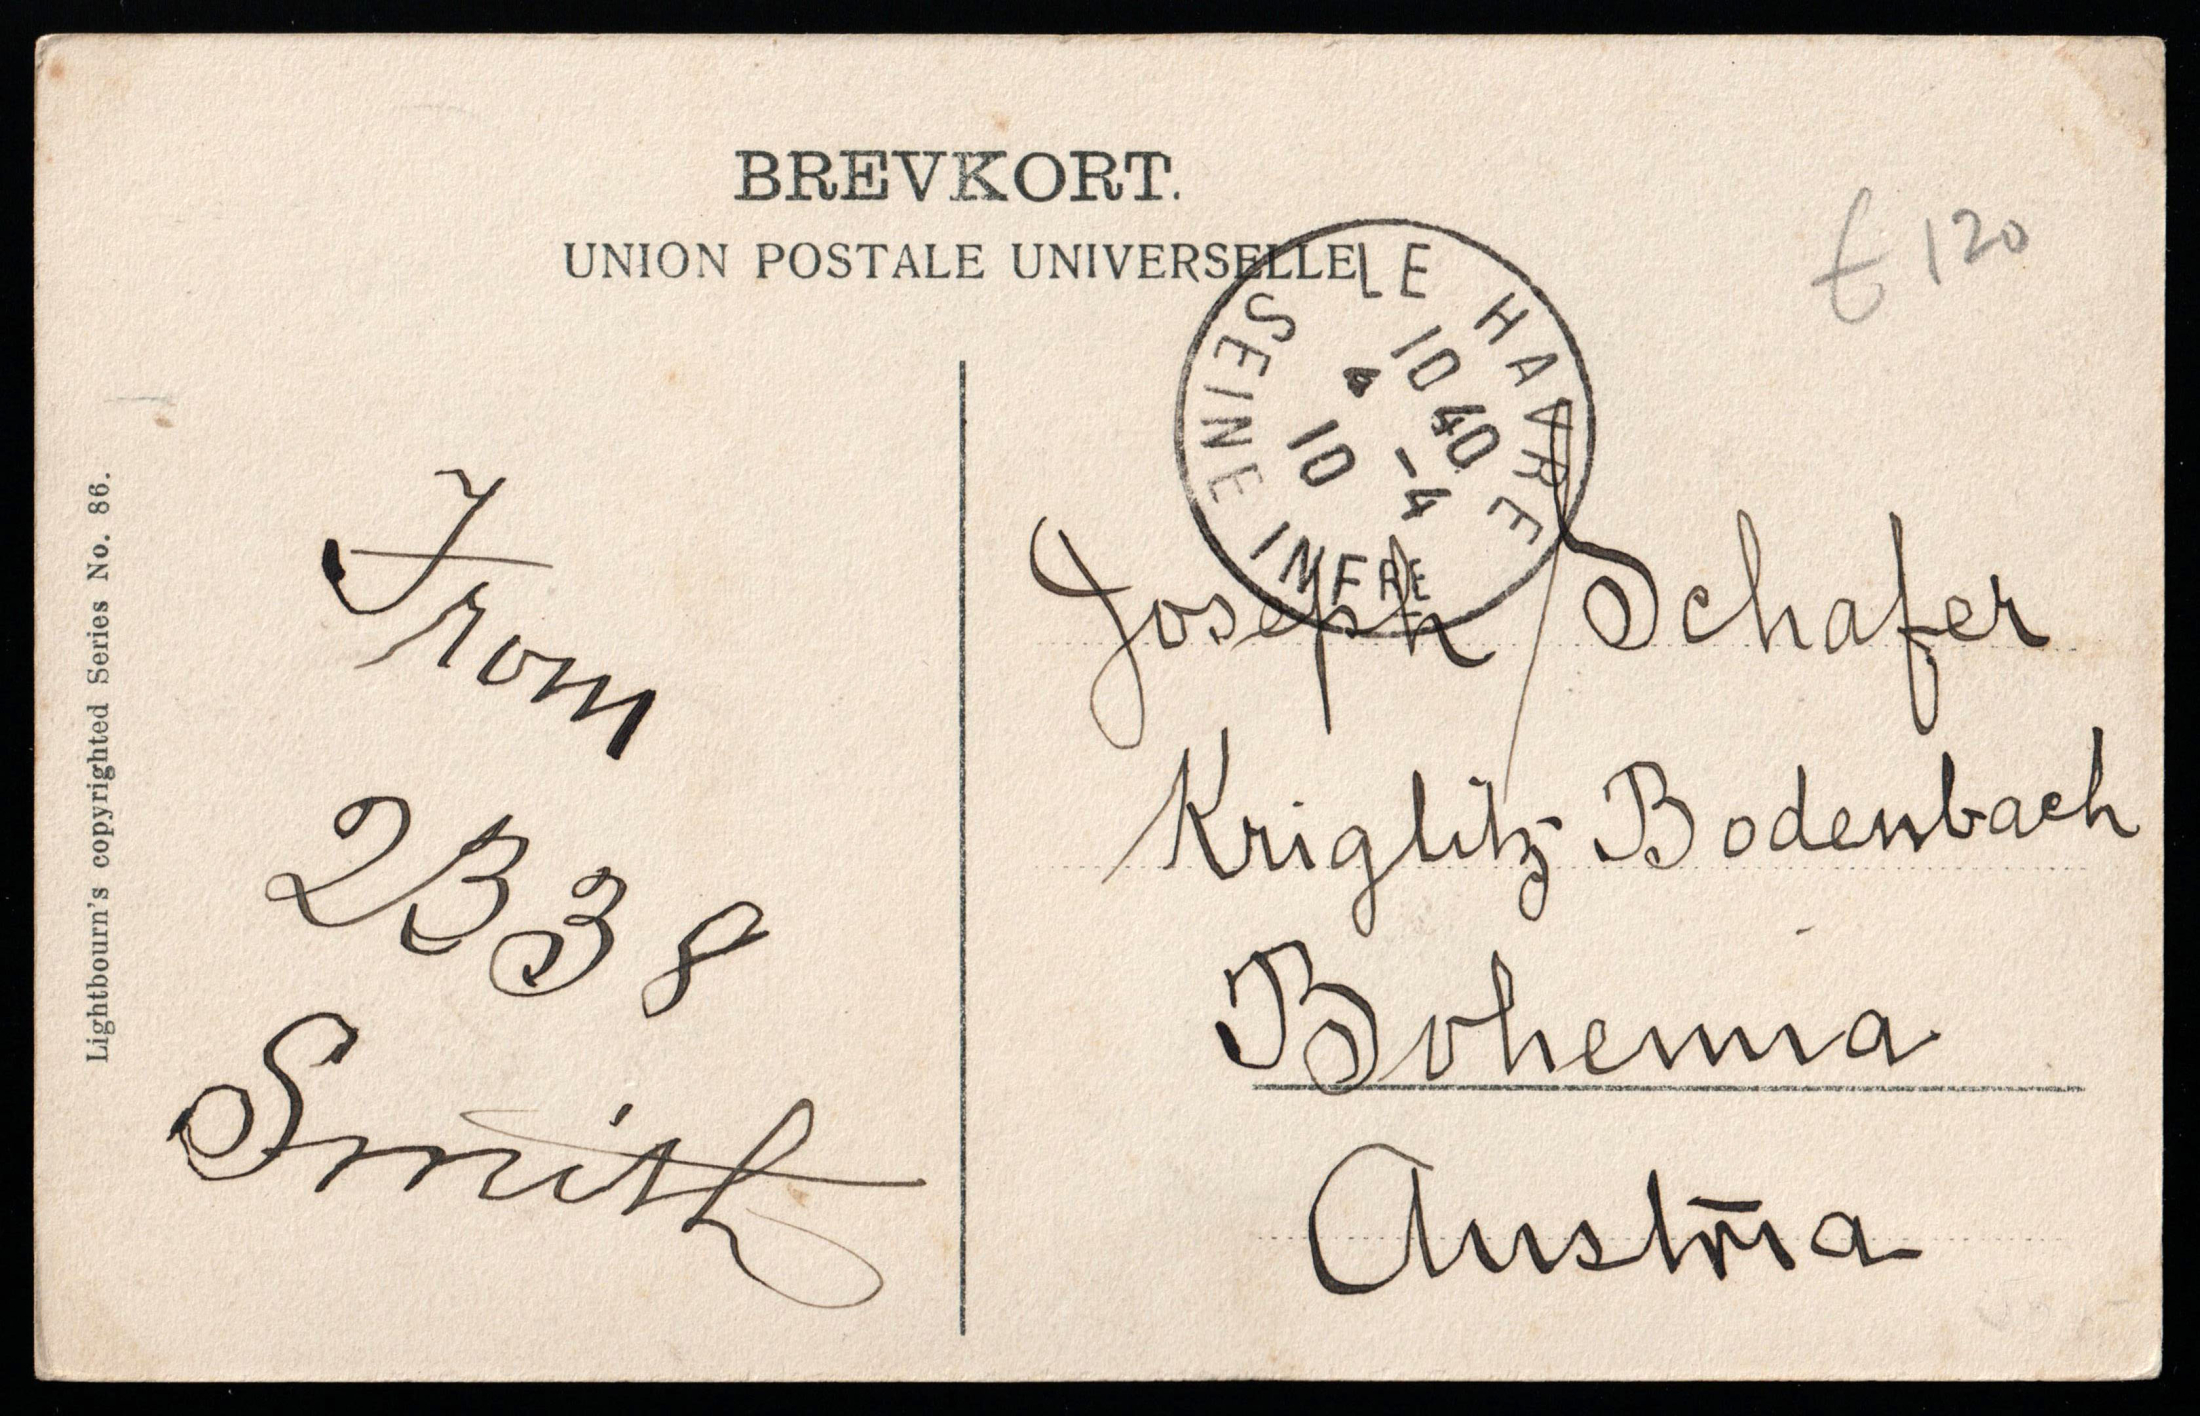 BREVKORT.
UNION POSTALE UNIVERSELLE
LE HAVRE
SEINE INFRE
10 40
4 -4
10
£ 120
Lightbourn's copyrighted Series No. 86.
From
2B38
Smith
Joseph Schafer
Kriglitz-Bodenbach
Bohemia
Austria